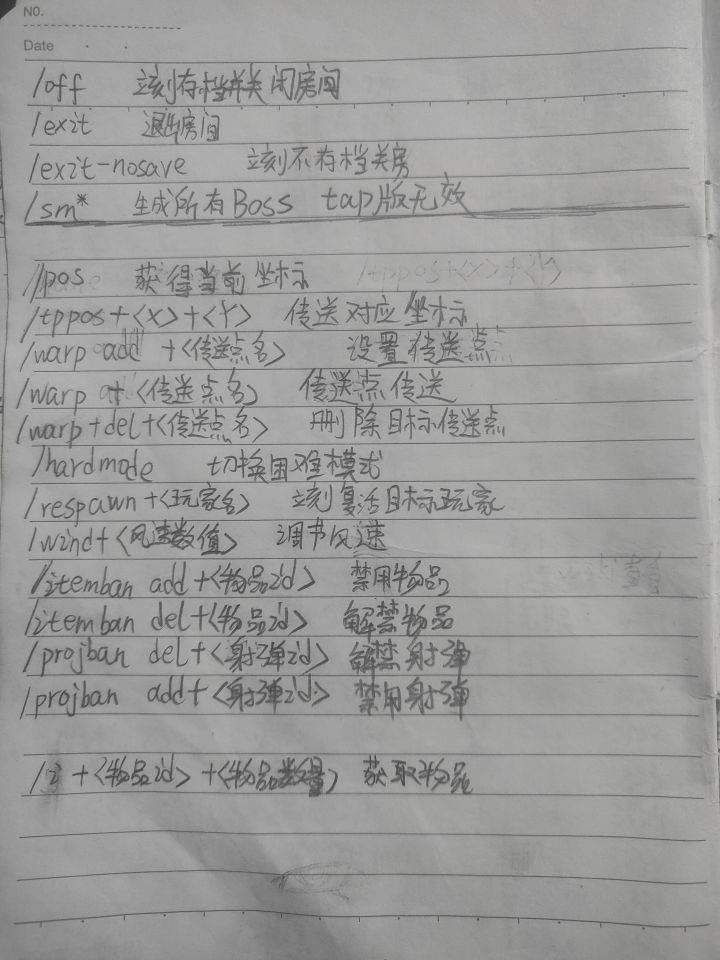 N0.
Date
/off 立刻存档并关闭房间
/exit 退出房间
/exit-nosave 立刻不存档关房
/sm* 生成所有Boss tap版无效
/pos 获得当前坐标 /tppos+<X>+<Y>
/tppos+<X>+<Y> 传送对应坐标
/warp add +<传送点名> 设置传送点
/warp +<传送点名> 传送点传送
/warp+del+<传送点名> 删除目标传送点
/hardmode 切换困难模式
/respawn+<玩家名> 立刻复活目标玩家
/wind+<风速数值> 调节风速
/itemban add+<物品id> 禁用物品
/itemban del+<物品id> 解禁物品
/projban del+<射弹id> 解禁射弹
/projban add+<射弹id> 禁用射弹
/i +<物品id> +<物品数量> 获取物品